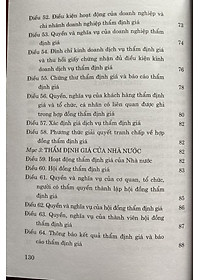 Điều 52. Điều kiện hoạt động của doanh nghiệp và
chi nhánh doanh nghiệp thẩm định giá 72
Điều 53. Quyền và nghĩa vụ của doanh nghiệp thẩm
định giá 74
Điều 54. Đình chỉ kinh doanh dịch vụ thẩm định giá
và thu hồi giấy chứng nhận đủ điều kiện kinh
doanh dịch vụ thẩm định giá 76
Điều 55. Chứng thư thẩm định giá và báo cáo thẩm
định giá 78
Điều 56. Quyền, nghĩa vụ của khách hàng thẩm định
giá và tổ chức, cá nhân có liên quan được ghi
trong hợp đồng thẩm định giá
Điều 57. Xác định giá dịch vụ thẩm định giá
Điều 58. Phương thức giải quyết tranh chấp về hợp
đồng thẩm định giá 82
Mục 3: THẨM ĐỊNH GIÁ CỦA NHÀ NƯỚC 82
Điều 59. Hoạt động thẩm định giá của Nhà nước 82
Điều 60. Hội đồng thẩm định giá
Điều 61. Quyền và nghĩa vụ của cơ quan, tổ chức,
người có thẩm quyền thành lập hội đồng thẩm
định giá
Điều 62. Quyền và nghĩa vụ của hội đồng thẩm định giá
Điều 63. Quyền, nghĩa vụ của thành viên hội đồng
thẩm định giá
Điều 64. Thông báo kết quả thẩm định giá và báo
cáo thẩm định giá 88
130